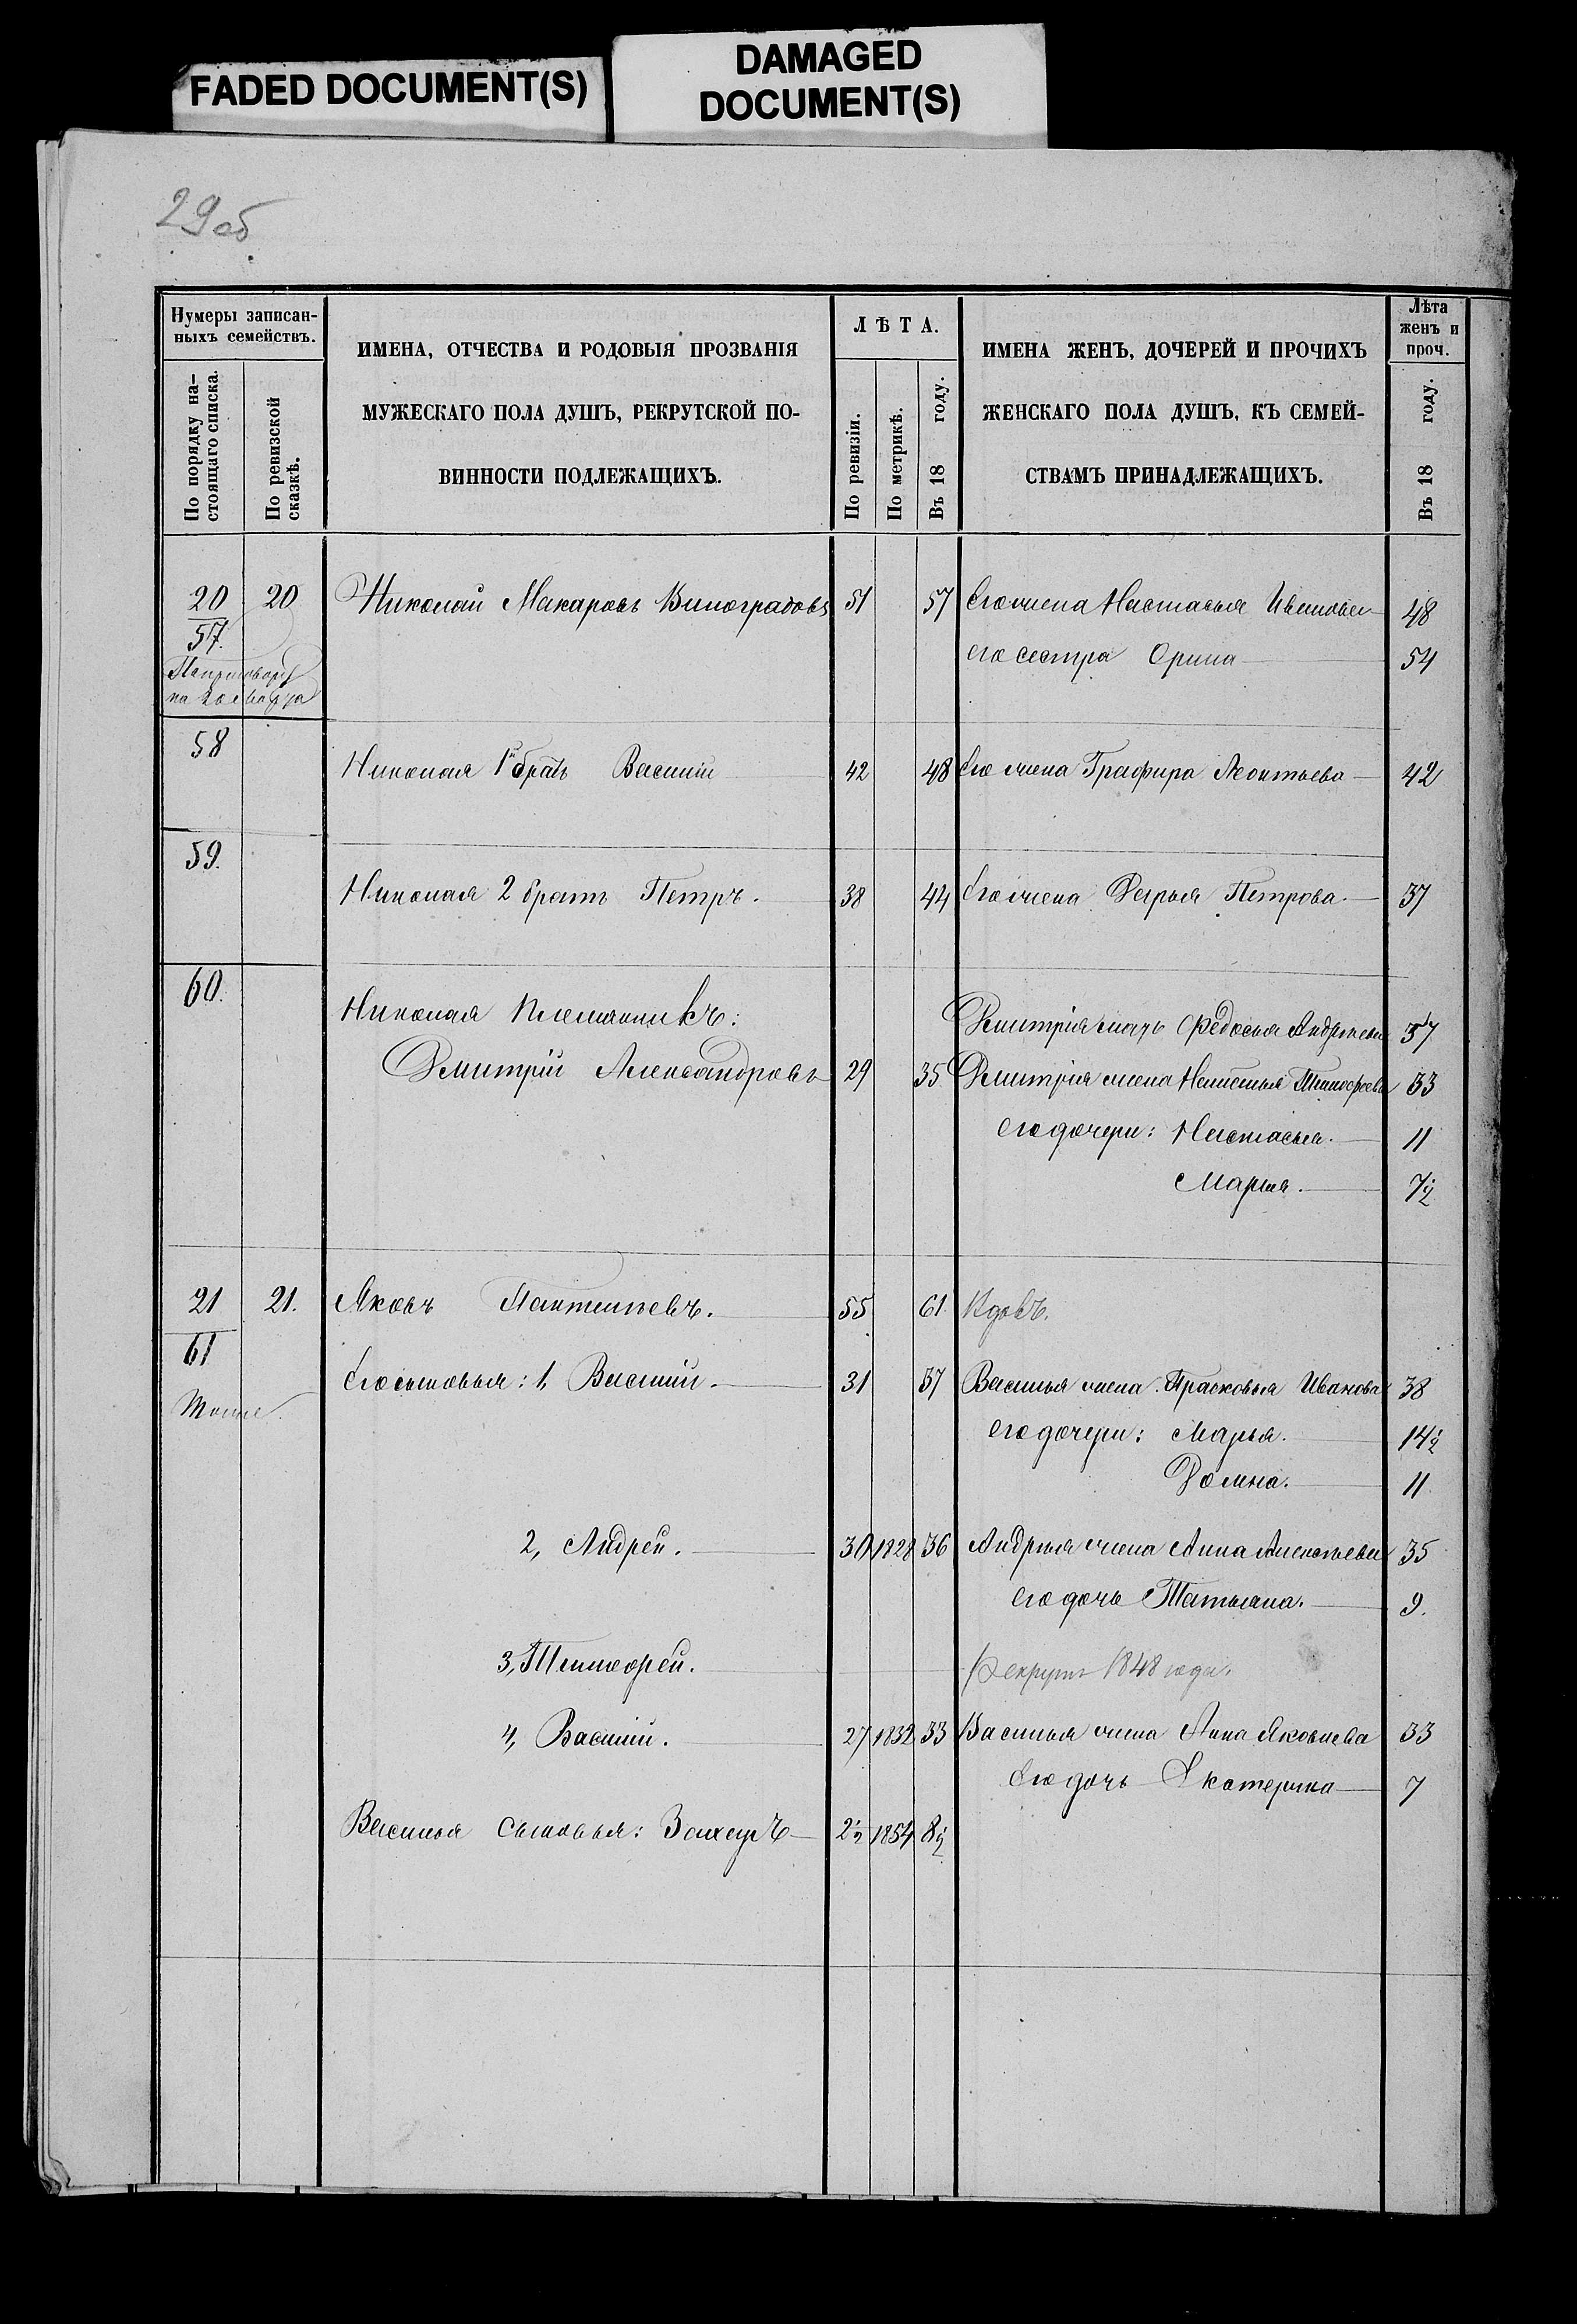 FADED DOCUMENT(S)
DAMAGED
DOCUMENT(S)
29 об
Нумеры записан-
ныхъ семействъ.
По порядку на-
стоящаго списка.
По ревизской
сказкѣ.
ИМЕНА, ОТЧЕСТВА И РОДОВЫЯ ПРОЗВАНІЯ
МУЖЕСКАГО ПОЛА ДУШЪ, РЕКРУТСКОЙ ПО-
ВИННОСТИ ПОДЛЕЖАЩИХЪ.
ЛѢТА.
По ревизіи.
По метрикѣ.
Въ 18 году.
ИМЕНА ЖЕНЪ, ДОЧЕРЕЙ И ПРОЧИХЪ
ЖЕНСКАГО ПОЛА ДУШЪ, КЪ СЕМЕЙ-
СТВАМЪ ПРИНАДЛЕЖАЩИХЪ.
Лѣта
женъ и
проч.
Въ 18 году.
20 20 Николай Макаровъ Виноградовъ 51 57 Его жена Настасья Иванова 48
57.
его сестра Орина 54
По приговору
на 20 января
58
Николая 1й братъ Василій 42 48 Его жена Графира Леонтьева 42
59.
Николая 2 братъ Петръ. 38 44 Его жена Дарья Петрова. 37
60.
Николая племянникъ: Дмитрія мать Федосья Андреева 57
Дмитрій Александровъ 29 35 Дмитрія жена Настасья Тимофеева 33
его дочери: Настасья. 11
Марья. 7½
21 21. Яковъ Пантелѣевъ. 55 61 Вдовъ.
61
Его сыновья: 1, Василій. 31 37 Василья жена Прасковья Иванова 38
Тоже.
его дочери: Марья. 14½
Домна. 11
2, Андрей. 30 1828 36 Андрея жена Анна Алексѣева 35
его дочь Татьяна. 9.
3, Тимофей. Рекрутъ 1848 года.
4, Василій. 27 1832 33 Василья жена Анна Яковлева 33
Его дочь Екатерина 7
Василья сыновья: Захаръ 2½ 1854 8½